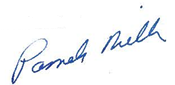 Pamela Miller